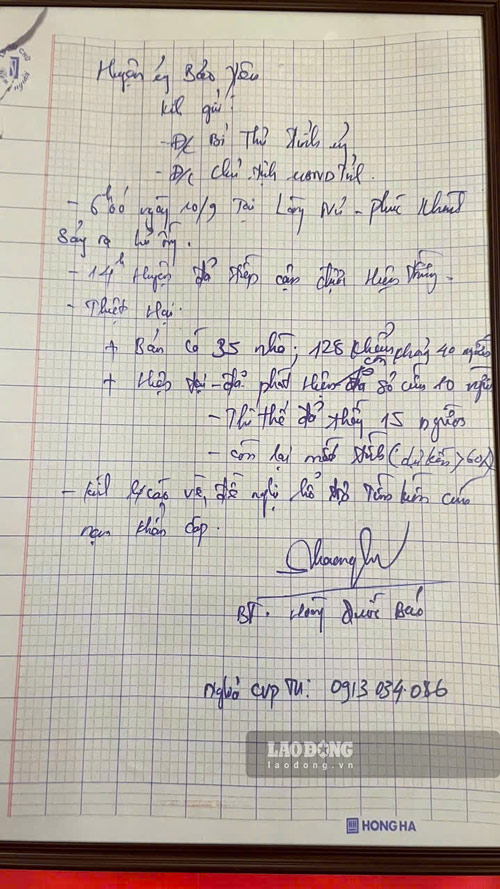 Huyện ủy Bảo Yên
Kính gửi:
- Đ/c Bí Thư Tỉnh ủy
- Đ/c Chủ tịch UBND Tỉnh.
- 6h00 ngày 10/9 Tại Làng Nủ - Phúc Khánh
Sảy ra lũ ống.
- 14h Huyện đã tiếp cận được Hiện trường.
- Thiệt Hại:
+ Bản có 35 nhà; 128 khẩu 40 người
+ Hiện tại - đã phát Hiện số cứu 10 người
- Thi thể đã thấy 15 người
- còn lại mất tích (dự kiến > 60%)
- Kính b/cáo về, đề nghị hỗ trợ Tìm kiếm cứu
nạn khẩn cấp.
BT. Hoàng Quốc Bảo
Nghĩa CVP TU: 0913 034.086
LAO ĐỘNG
laodong.vn
HONG HA